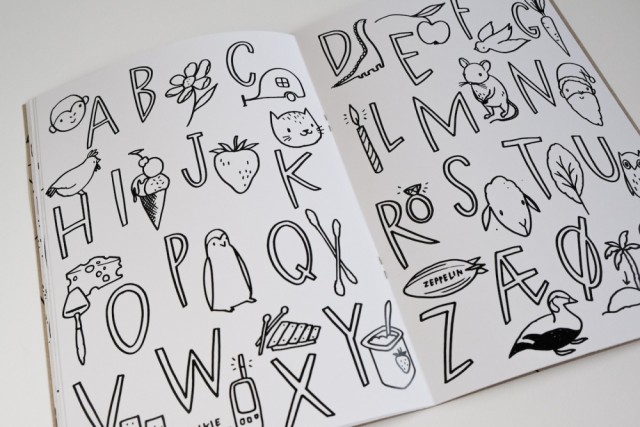 A B C
H I J K
O P Q
V W X Y
D E F G
L M N
R S T U
ZEPPELIN
Z Æ Ø